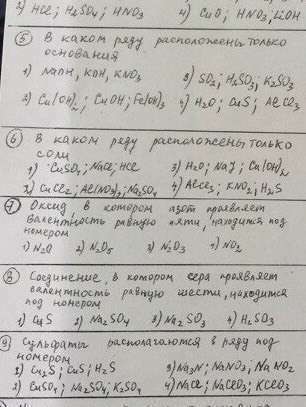 3) HCl; H2SO4; HNO3 4) CuO; HNO3; LiOH
5 В каком ряду расположены только
основания
1) NaOH, KOH, KNO3 3) SO2; H2SO3; K2SO3
2) Cu(OH)2; CuOH; Fe(OH)3 4) H2O; CuS; AlCl3
6 В каком ряду расположены только
соли
1) CuSO4; NaCl; HCl 3) H2O; NaJ; Cu(OH)2
2) CuCl2; Al(NO3)3; Na2SO4 4) AlCl3; KNO2; H2S
7 Оксид, в котором азот проявляет
Валентность равную пяти, находится под
номером
1) N2O 2) N2O5 3) N2O3 4) NO2
8 Соединение, в котором сера проявляет
валентность равную шести, находится
под номером
1) CuS 2) Na2SO4 3) Na2SO3 4) H2SO3
9 Сульфаты располагаются в ряду под
номером
1) Cu2S; CuS; H2S 3) Na3N; NaNO3; NaNO2
2) CuSO4; Na2SO4; K2SO4 4) NaCl; NaClO3; KClO3